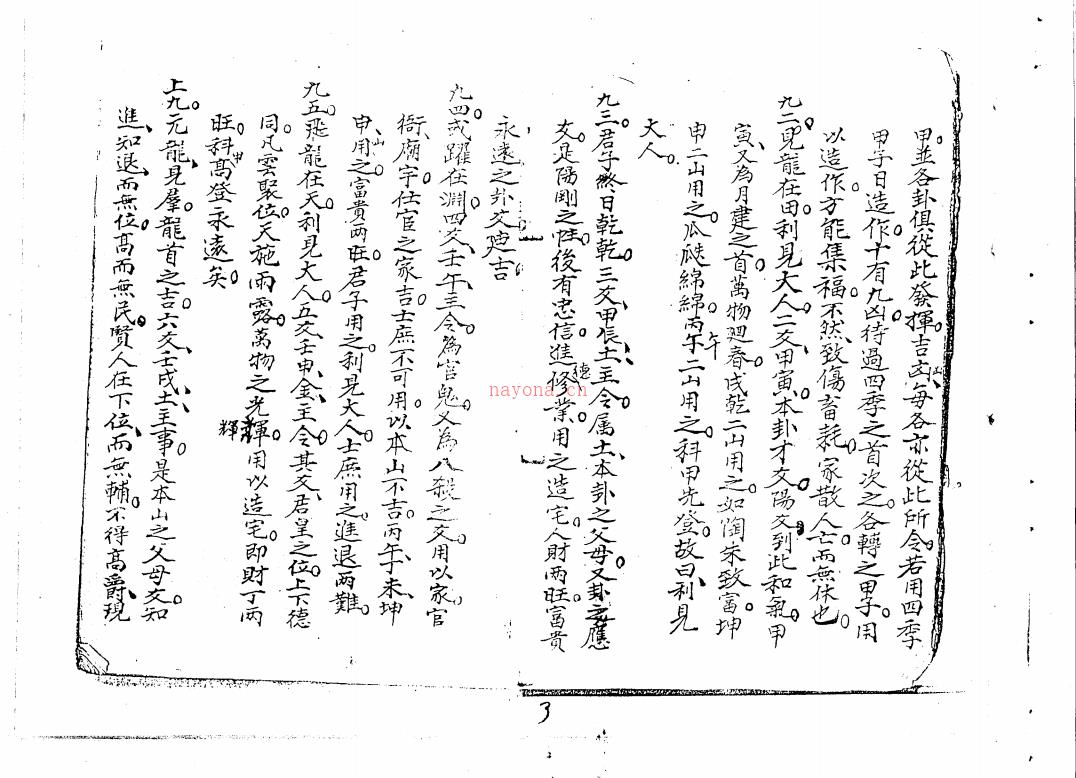 甲並各卦俱從此發揮。吉凶每各亦從此所令。若用四季
甲子日造作。十有九凶待過四季之首次之各轉之甲子。用
以造作。方能集福。不然致傷畜耗。家散人亡而無休也。
九二見龍在田利見大人。二爻甲寅本卦才爻陽爻到此和氣甲
寅、又為月建之首萬物廻春戌乾二山用之。如陶朱致富坤
申二山用之。瓜瓞綿綿。丙午二山用之。科甲先登。故曰利見
大人。
九三。君子終日乾乾。三爻甲辰土主令。属土本卦之父母。又卦之應
爻。是陽剛之性。後有忠信進德修業。用之造宅人財兩旺。富貴
永遠之卦爻迪吉。
九四。或躍在淵四爻壬午主令。為官鬼。又為八殺之爻。用以家官
衙、廟宇仕宦之家吉。士庶不可用。以本山不吉。丙午、未坤
申、山用之富貴兩旺。君子用之。利見大人。士庶用之。進退兩難。
九五。飛龍在天。利見大人。五爻壬申、金、主令。其爻君皇之位。上下德
同。凡雲聚位。天施雨露。萬物之光輝。用以造宅。即財丁兩
輝
旺。科甲高登永遠矣。
上九。元龍、見羣龍首之吉。六爻壬戌、土主事。是本山之父母爻知
進、知退、而無位。高而無民。賢人在下位、而無輔。不得高爵、現
nayona.cn
3